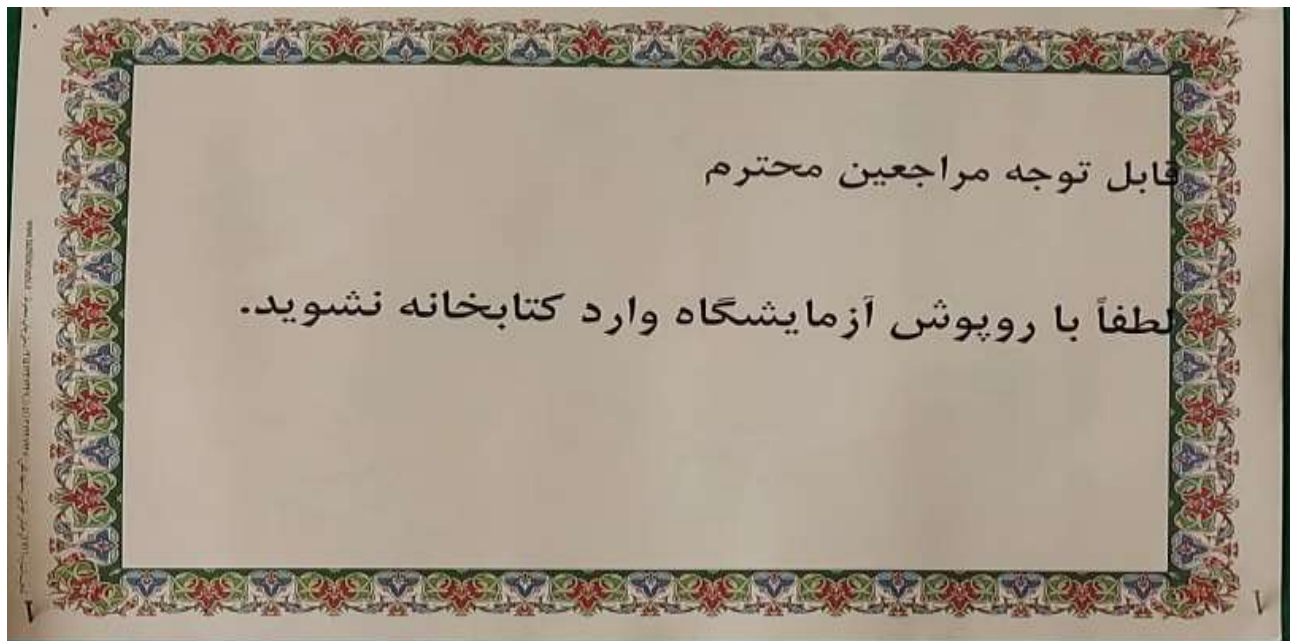 قابل توجه مراجعین محترم
لطفاً با روپوش آزمایشگاه وارد کتابخانه نشوید.